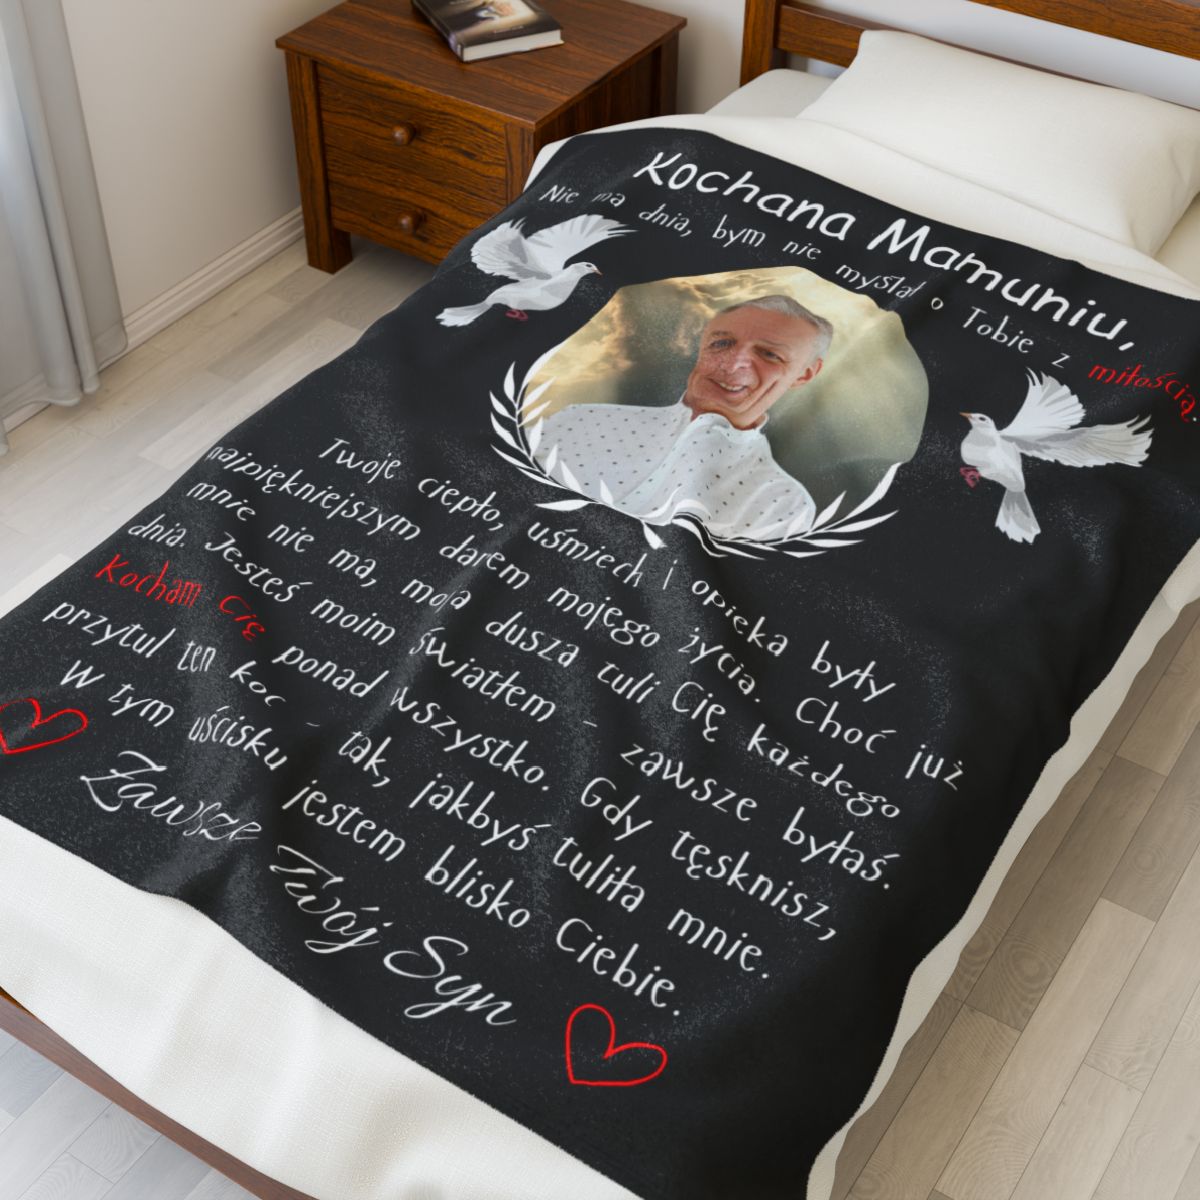 Kochana Mamuniu,
Nie ma dnia, bym nie myślał o Tobie z miłością.
Twoje ciepło, uśmiech i opieka były
najpiękniejszym darem mojego życia. Choć już
mnie nie ma, moja dusza tuli Cię każdego
dnia. Jesteś moim światłem - zawsze byłaś.
Kocham Cię ponad wszystko. Gdy tęsknisz,
przytul ten koc - tak, jakbyś tuliła mnie.
W tym uścisku jestem blisko Ciebie.
Zawsze Twój Syn